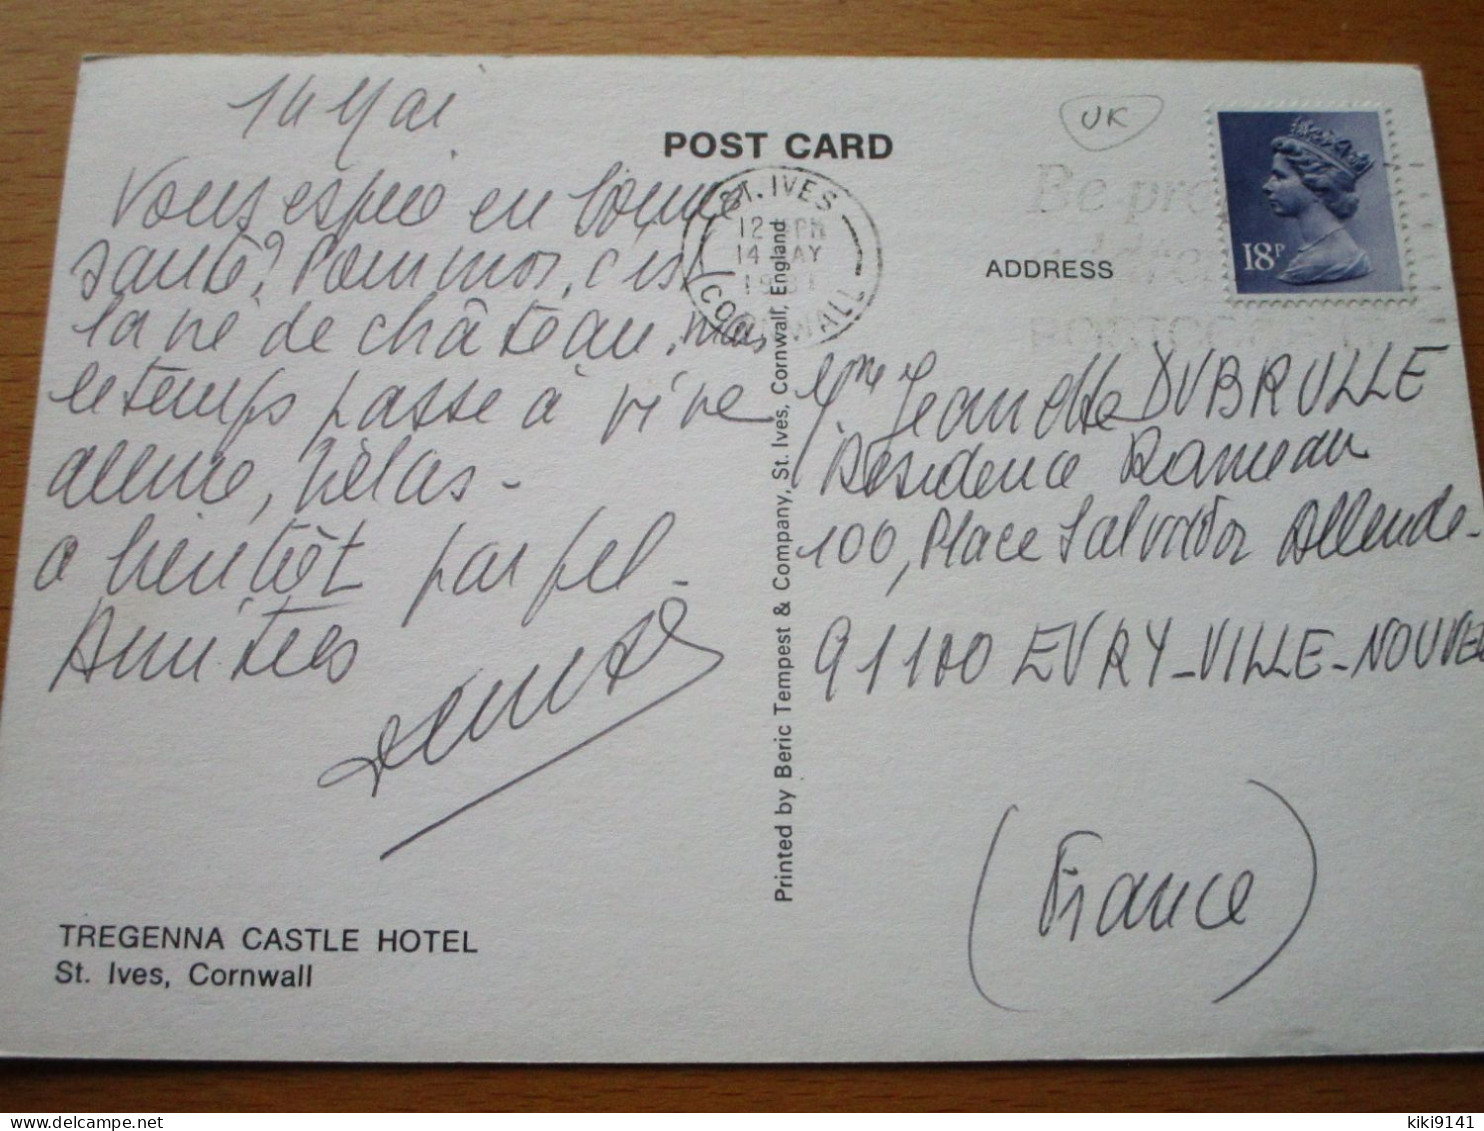 14 Mai
Vous espère en bonne
santé? Pour moi, c'est
la vie de château, mais
le temps passe à vive
allure, hélas -
a bientôt par fil -
Amitiés
TREGENNA CASTLE HOTEL
St. Ives, Cornwall
POST CARD
ST. IVES
12 PM
14 MAY
CORNWALL
Printed by Beric Tempest & Company, St. Ives, Cornwall, England
UK
Be pro
ADDRESS
18P
Mme Jeannette DUBRULLE
Résidence Rameau
100, Place Salvador Allende -
91100 EVRY-VILLE-NOUVELLE
(France)
kiki9141